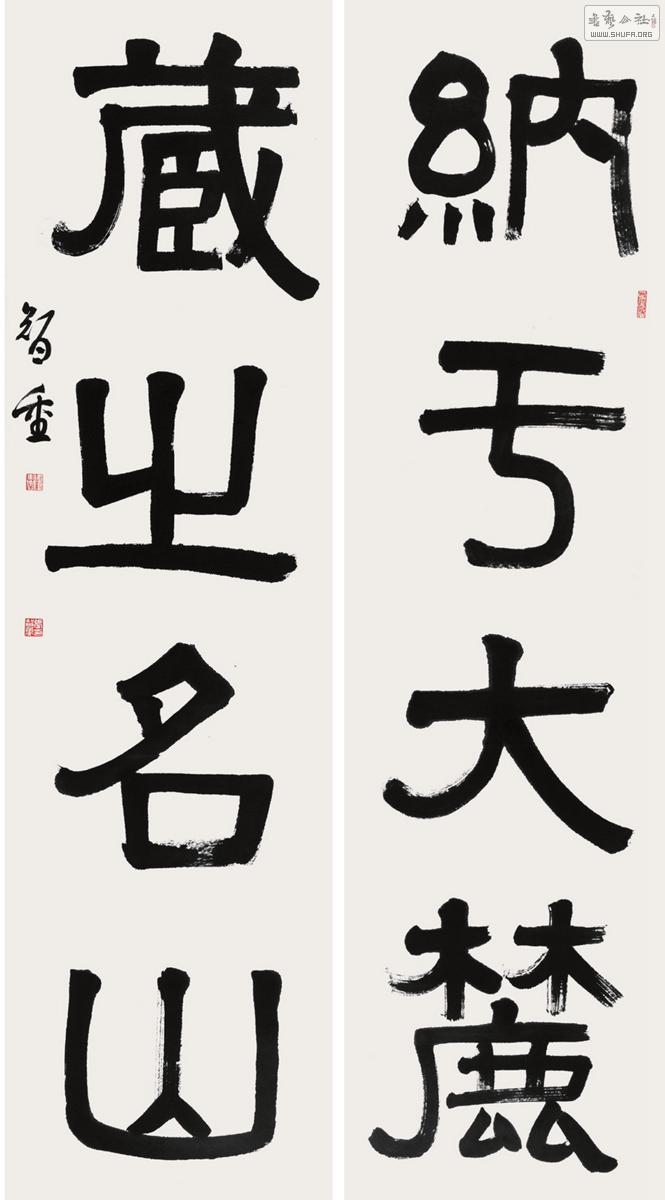 納于大麓
藏之名山
智重
書藝公社
WWW.SHUFA.ORG